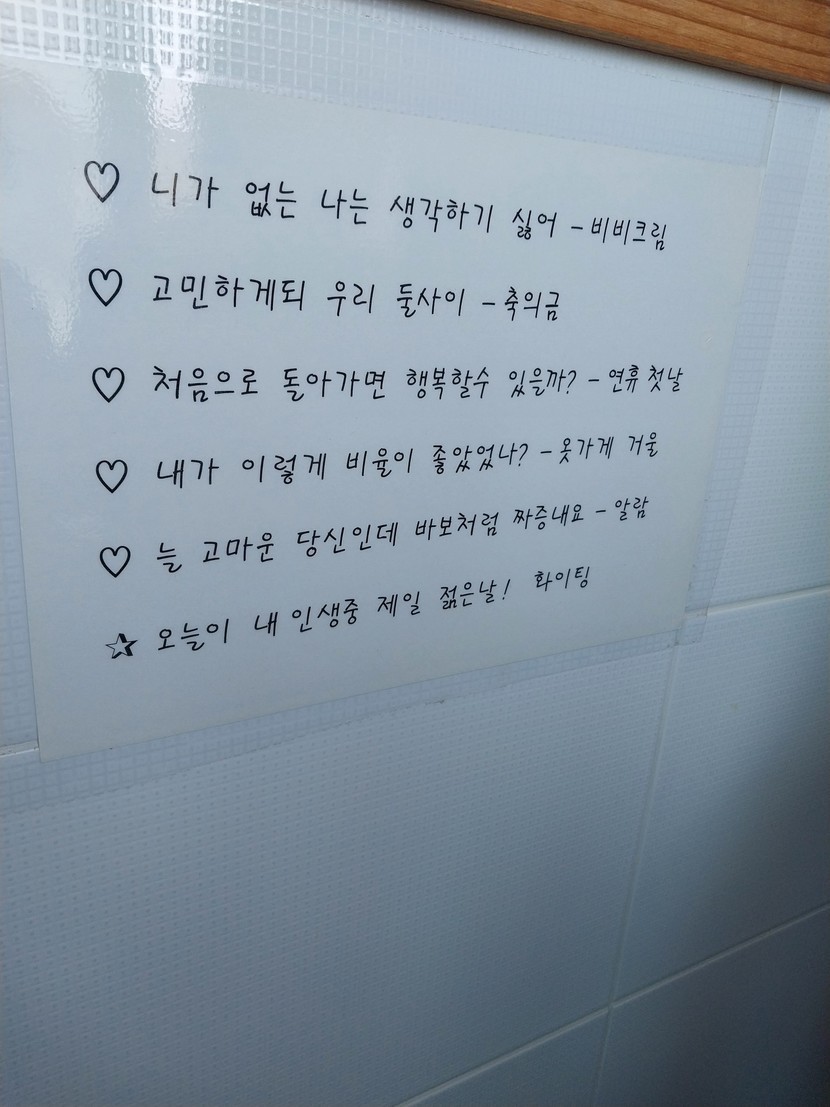 ♡ 니가 없는 나는 생각하기 싫어 - 비비크림
♡ 고민하게되 우리 둘사이 - 축의금
♡ 처음으로 돌아가면 행복할수 있을까? - 연휴 첫날
♡ 내가 이렇게 비율이 좋았었나? - 옷가게 거울
♡ 늘 고마운 당신인데 바보처럼 짜증내요 - 알람
☆ 오늘이 내 인생중 제일 젊은날! 화이팅